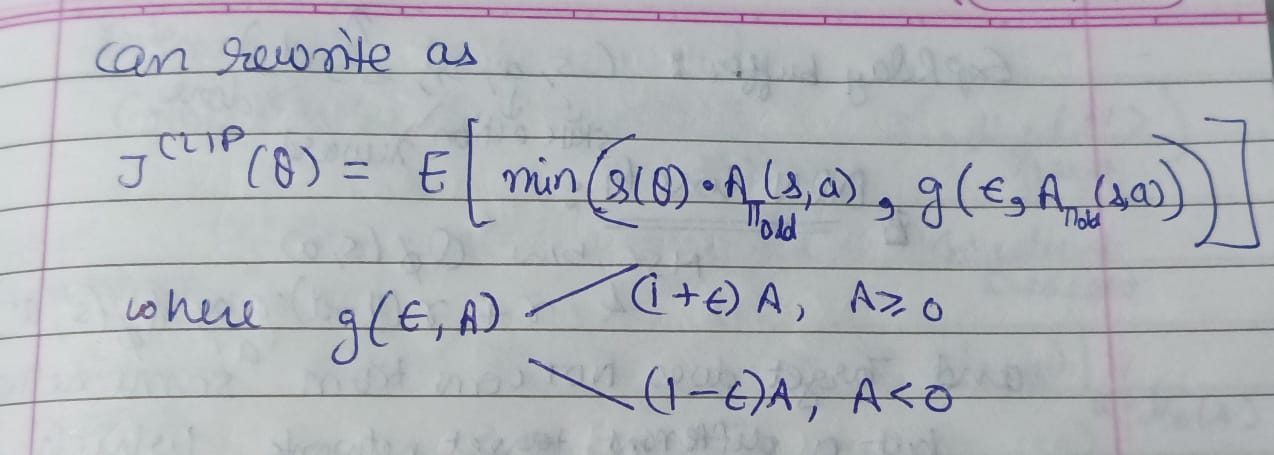 can rewrite as
J^CLIP (θ) = E[min(r(θ)·A_πold(s,a), g(ϵ, A_πold(s,a)))]
where g(ϵ, A) (1+ϵ)A, A≥0
(1-ϵ)A, A<0